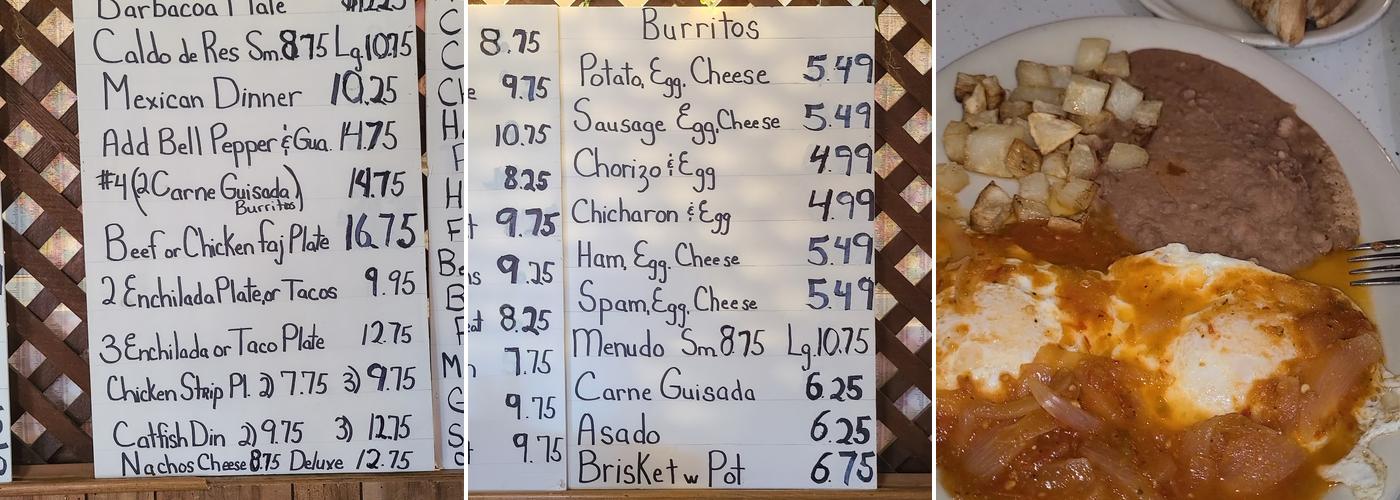 Barbacoa Plate $12.25
Caldo de Res Sm 8.75 Lg. 10.75
Mexican Dinner 10.25
Add Bell Pepper & Gua. 14.75
#4 (2 Carne Guisada) 14.75
Burritos
Beef or Chicken faj Plate 16.75
2 Enchilada Plate, or Tacos 9.95
3 Enchilada or Taco Plate 12.75
Chicken Strip Pl. 2) 7.75 3) 9.75
Catfish Din 2) 9.75 3) 12.75
Nachos Cheese 8.75 Deluxe 12.75
8.75
9.75
10.75
8.25
9.75
9.25
8.25
7.75
9.75
9.75
Burritos
Potato, Egg, Cheese 5.49
Sausage Egg, Cheese 5.49
Chorizo & Egg 4.99
Chicharon & Egg 4.99
Ham, Egg, Cheese 5.49
Spam, Egg, Cheese 5.49
Menudo Sm 8.75 Lg. 10.75
Carne Guisada 6.25
Asado 6.25
Brisket w Pot 6.75